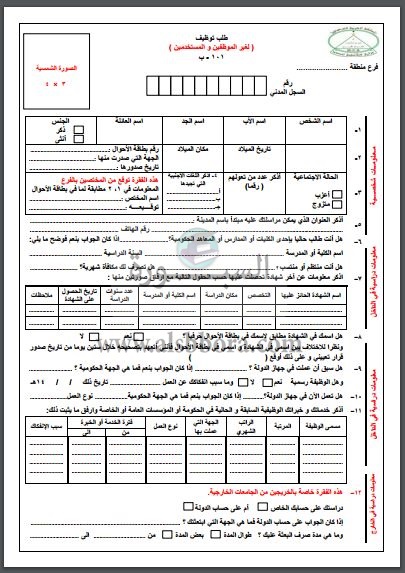 طلب توظيف
( لغير الموظفين و المستخدمين )
١٠١ - ب
الصورة الشمسية
٣ × ٤
فرع منطقة
رقم
السجل المدني
معلومات شخصية
١- اسم الشخص اسم الأب اسم الجد اسم العائلة الجنس
ذكر
أنثى
٢- تاريخ الميلاد مكان الميلاد رقم بطاقة الأحوال :
الجهة التي صدرت منها :
تاريخ صدورها :
٣- الحالة الاجتماعية
أعزب
متزوج
أذكر عدد من تعولهم
( رقما)
٤- أذكر اللغات الأجنبية
التي تجيدها
أ-
ب-
ج-
هذه الفقرة توقع من المختصين بالفرع
المعلومات في ١ ، ٢ مطابقة لما في بطاقة الأحوال
اسم المختص :
توقيعه :
٥- أذكر العنوان الذي يمكن مراسلتك عليه مبتدأ باسم المدينة
رقم الهاتف
٦- هل أنت طالب حاليا بإحدى الكليات أو المدارس أو المعاهد الحكومية؟ إذا كان الجواب بنعم فوضح ما يلي:
اسم الكلية أو المدرسة السنة الدراسية
هل أنت منتظم أو منتسب ؟ هل تصرف لك مكافأة شهرية؟
٧- أذكر معلومات عن آخر شهادة تحصلت عليها حسب الحقول التالية مع إرفاق صورتين منها :
اسم الشهادة الحائز عليها التخصص مكان الدراسة اسم الكلية أو المدرسة عدد سنوات الدراسة تاريخ الحصول على الشهادة ملاحظات
السبورة
www.alsbbora.com
٨- هل اسمك في الشهادة مطابق لاسمك في بطاقة الأحوال حرفيا ؟ نعم لا
٩- هل سبق أن عملت في جهاز الدولة ؟ إذا كان الجواب بنعم فما هي الجهة الحكومية ؟
وهل الوظيفة رسمية نعم لا وما سبب انفكاكك عن العمل تاريخ ذلك / / ١٤هـ
١٠- هل تعمل الآن في جهاز الدولة؟ إذا كان الجواب بنعم فما هي الجهة الحكومية نوع العمل
١١- أذكر خدماتك و خبراتك الوظيفية السابقة و الحالية في الحكومة أو المؤسسات العامة أو الخاصة وارفق ما يثبت ذلك:
مسمى الوظيفة المرتبة الراتب الشهري الجهة التي عملت بها نوع العمل فترة الخدمة أو الخبرة من الى سبب الإنفكاك
١٢- هذه الفقرة خاصة بالخريجين من الجامعات الخارجية.
دراستك على حسابك الخاص أم على حساب الدولة
إذا كان الجواب على حساب الدولة فما هي الجهة التي ابتعثتك ؟
وما هي مدة صرف البعثة عليك ؟ طوال المدة بعض المدة من الى